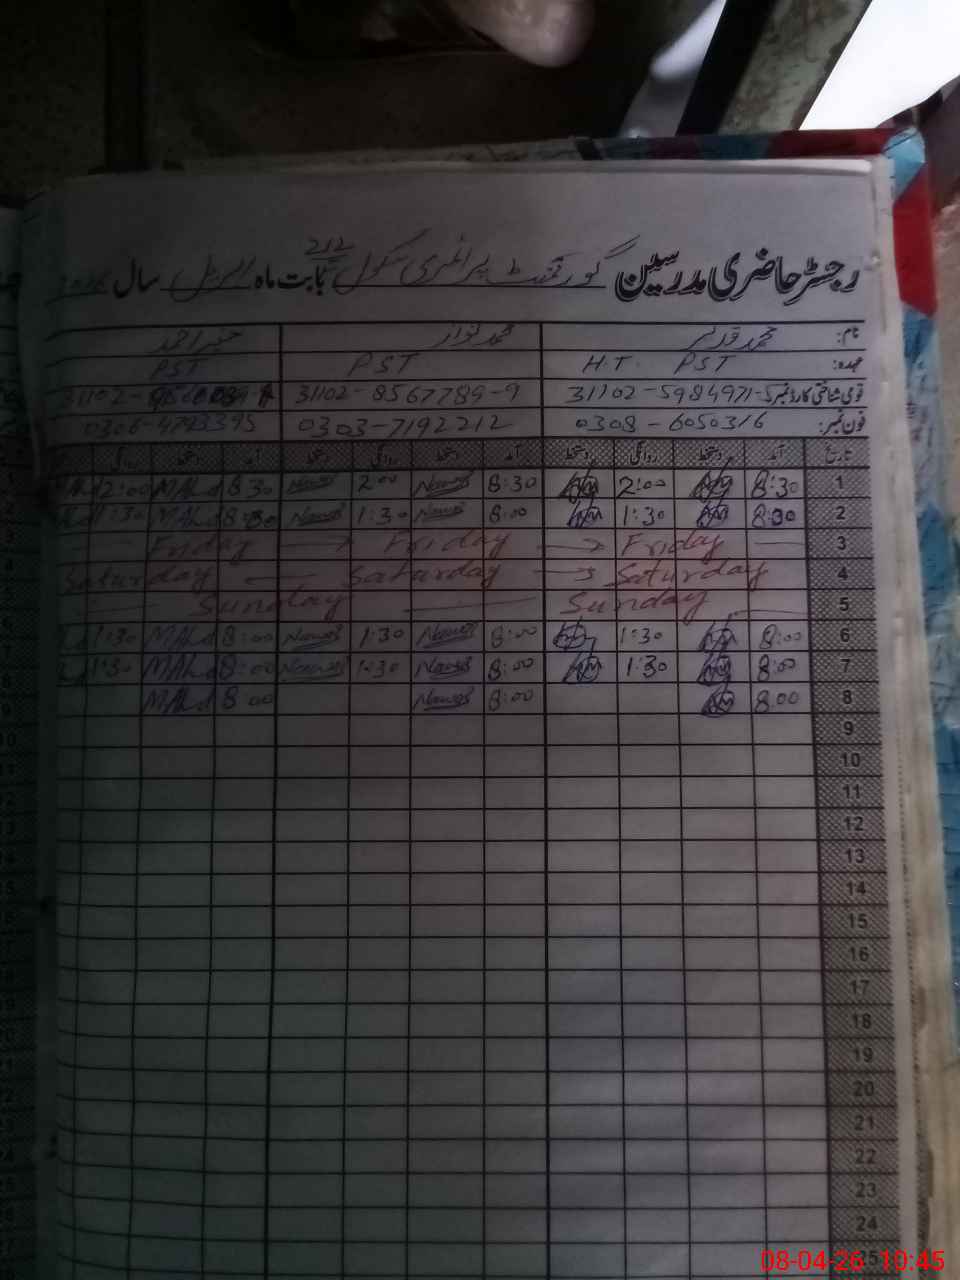 رجسٹر حاضری مدرسین گورنمنٹ پرائمری سکول 212 بابت ماہ اپریل سال
نام: محمد قدیر محمد نواز
عہدہ: H.T. PST PST PST
قومی شناختی کارڈ نمبر 31102-5984971-5 31102-8567789-9
فون نمبر: 0308-6050316 0303-7192212 0306-4793395
تاریخ آمد دستخط روانگی دستخط آمد دستخط روانگی دستخط آمد دستخط روانگی
1 8:30 2:00 8:30 Nawaz 2:00 Nawaz 8:30 2:00
2 8:00 1:30 8:00 Nawaz 1:30 Nawaz 8:00 1:30
3 Friday Friday Friday
4 Saturday Saturday Saturday
5 Sunday Sunday
6 8:00 1:30 8:00 Nawaz 1:30 Nawaz 8:00 1:30
7 8:00 1:30 8:00 Nawaz 1:30 Nawaz 8:00 1:30
8 8:00 8:00 Nawaz 8:00
9
10
11
12
13
14
15
16
17
18
19
20
21
22
23
24
08-04-26 10:45